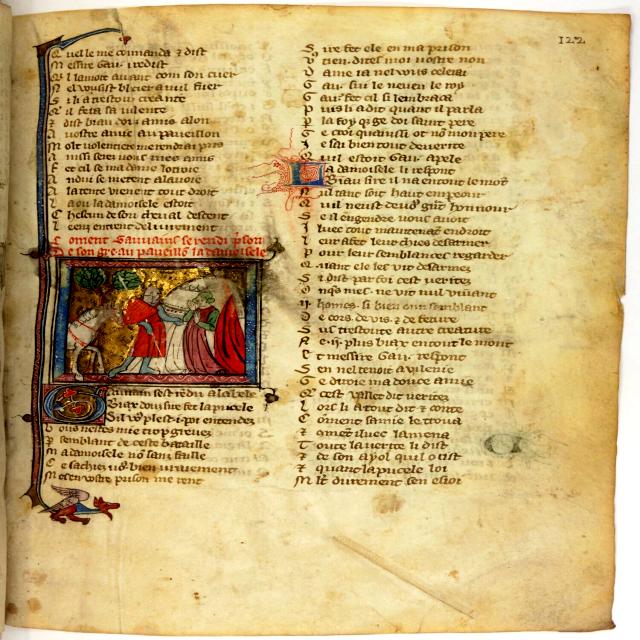 122
Q uel le me comanda & dist
M essire Gau. & redist
Q l lamoit autant com son cuer
S il a trestout creante
Q il fera sa volente
& dist biau dous amis alon
A uostre amie au paueillon
M olt volentiers
A nissi serei nous mes amis
E t cil se ma dame
A ndui se metent a la uoie
A la tent vienent tout droit
L a ou la damoisele estoit
C hescun de son cheual descent
L eenz entrent deliurement
C oment Gauuains se rendi prison
D e son gre au paueillon la damoisele
Gauuain sest rendu a la bele
Biax dous sire fet la pucele
Sil vos plest
V ous
P semblant de ceste bataille
M a damoisele no sanz faille
C e sachiez bien uraiement
M es en uostre prison me rent
S ire fet ele en ma prison
V tien. dites moi uostre non
D ame ia nel uous celerai
G au. sui le neueu le roy
G au. fet cil
P uis li a dit quant il parla
P la foy q ge doi saint pere
G e croi quaussi ot no mon pere
E sai bien tout de uerite
Quil estoit Gau. apele
La damoisele li respont
Biau sire il na en tout le mont
N ul tant soit haut
Q uil neust de uos grant honnour
S e a engendre uous auoit
I luec tout maintenant endroit
L eur a fet leur chies desarmer
P our leur semblances regarder
Q uant ele les vit desarmez
S i dist par foi cest veritez
O nqs mes ne vit nul viuant
.ii. homes si bien entresemblant
D e cors de vis & de feture
S us trestoute autre creature
A .ii. plus biax en tout le mont
E t messire Gau. respont
S en nel tenoit a vilenie
G e diroie ma douce amie
Q cest vallet dit veritez
L ors li a tout dit & conte
C oment s'amie le troua
& coment iluec lamena
T oute la verite li dist
& de son ayol quil ocist
& quant la pucele loi
M lt durement sen esioi